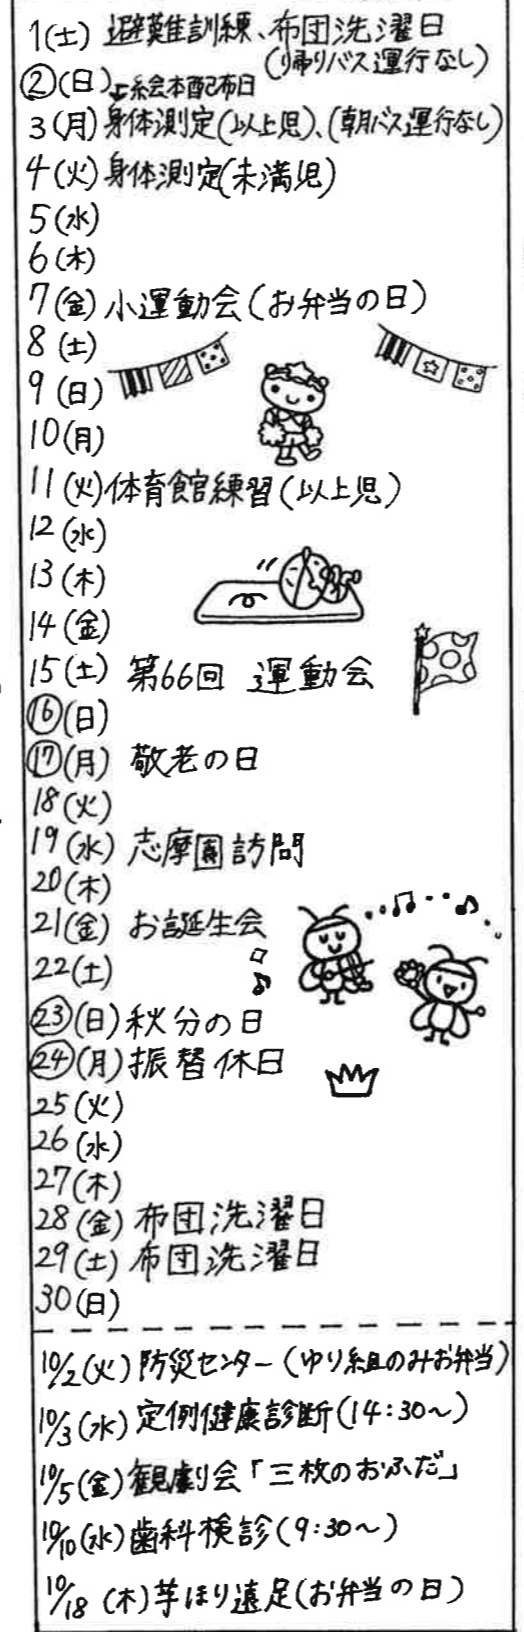 1(土) 避難訓練、布団洗濯日
(帰りバス運行なし)
②(日) 絵本配布日
3(月) 身体測定(以上児)、(朝バス運行なし)
4(火) 身体測定(未満児)
5(水)
6(木)
7(金) 小運動会(お弁当の日)
8(土)
9(日)
10(月)
11(火)体育館練習(以上児)
12(水)
13(木)
14(金)
15(土) 第66回 運動会
⑯(日)
⑰(月) 敬老の日
18(火)
19(水) 志摩園訪問
20(木)
21(金) お誕生会
22(土)
㉓(日)秋分の日
㉔(月)振替休日
25(火)
26(水)
27(木)
28(金) 布団洗濯日
29(土) 布団洗濯日
30(日)
10/2(火) 防災センター(ゆり組のみお弁当)
10/3(水) 定例健康診断(14:30〜)
10/5(金)観劇会「三枚のおふだ」
10/10(水)歯科検診(9:30〜)
10/18(木)芋ほり遠足(お弁当の日)